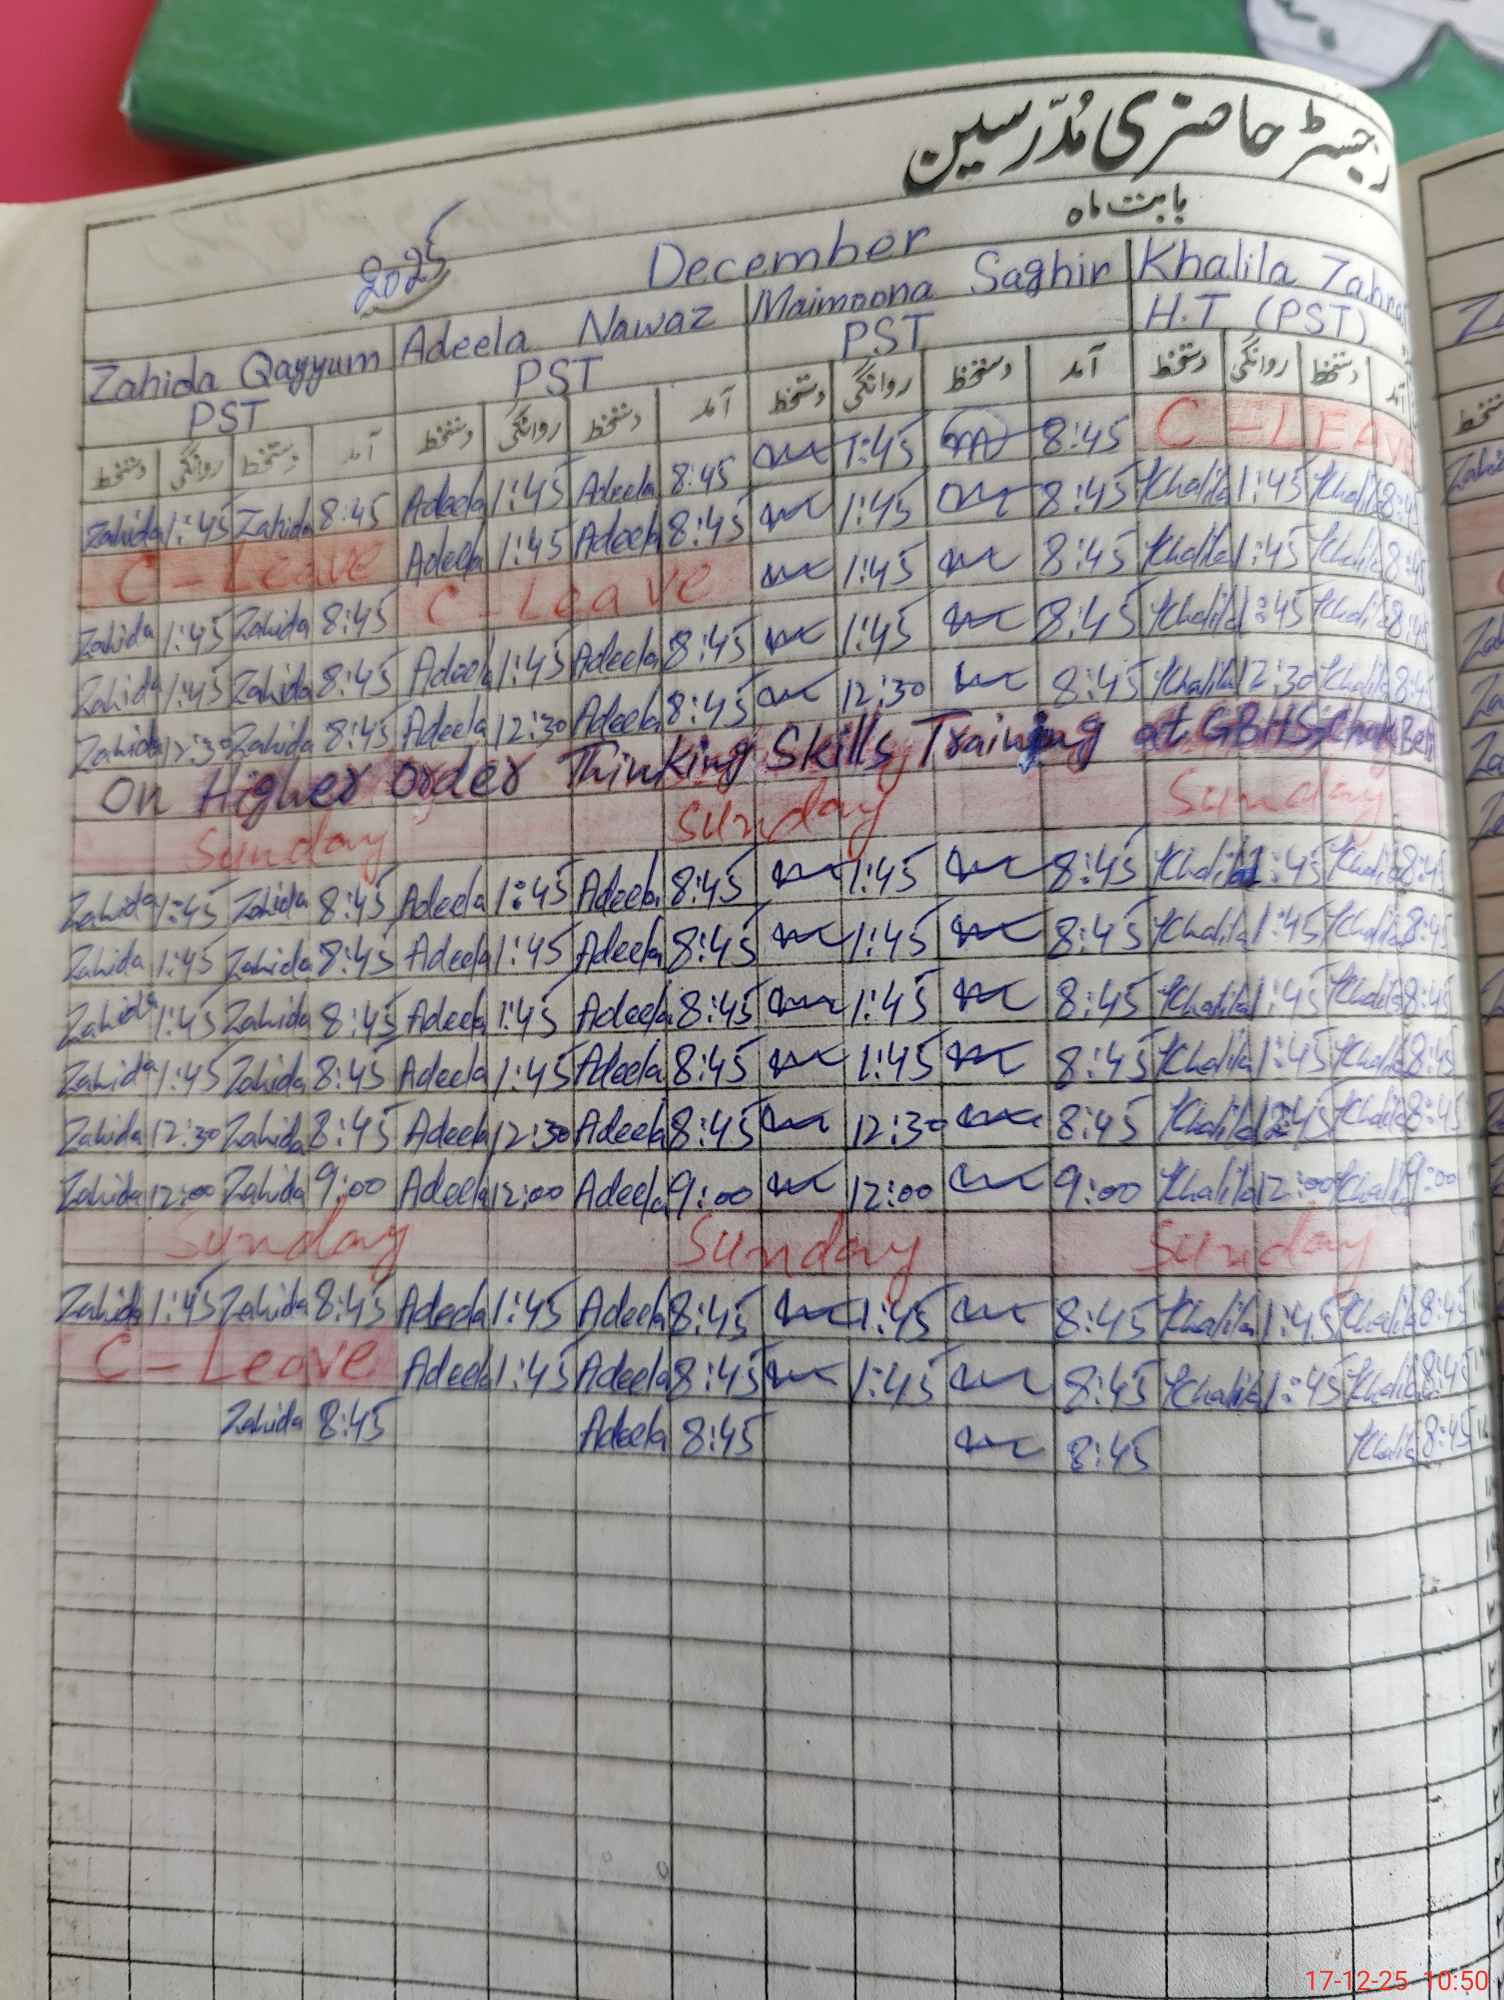 رجسٹر حاضری مُدّرسین
بابت ماہ
December 2025
Zahida Qayyum Adeela Nawaz Maimoona Saghir Khalila Zahra
PST PST PST H.T (PST)
دستخط روانگی دستخط آمد دستخط روانگی دستخط آمد دستخط روانگی دستخط آمد دستخط روانگی دستخط آمد
Zahida 1:45 Zahida 8:45 Adeela 1:45 Adeela 8:45 1:45 8:45 C-LEAVE
C-Leave Adeela 1:45 Adeela 8:45 1:45 8:45 Khalila 1:45 Khalila 8:45
Zahida 1:45 Zahida 8:45 C-Leave 1:45 8:45 Khalila 1:45 Khalila 8:45
Zahida 1:45 Zahida 8:45 Adeela 1:45 Adeela 8:45 1:45 8:45 Khalila 1:45 Khalila 8:45
Zahida 12:30 Zahida 8:45 Adeela 12:30 Adeela 8:45 12:30 8:45 Khalila 12:30 Khalila 8:45
On Higher order Thinking Skills Training at GBHS Chak Beli
Sunday Sunday Sunday
Zahida 1:45 Zahida 8:45 Adeela 1:45 Adeela 8:45 1:45 8:45 Khalila 1:45 Khalila 8:45
Zahida 1:45 Zahida 8:45 Adeela 1:45 Adeela 8:45 1:45 8:45 Khalila 1:45 Khalila 8:45
Zahida 1:45 Zahida 8:45 Adeela 1:45 Adeela 8:45 1:45 8:45 Khalila 1:45 Khalila 8:45
Zahida 1:45 Zahida 8:45 Adeela 1:45 Adeela 8:45 1:45 8:45 Khalila 1:45 Khalila 8:45
Zahida 12:30 Zahida 8:45 Adeela 12:30 Adeela 8:45 12:30 8:45 Khalila 12:45 Khalila 8:45
Zahida 12:00 Zahida 9:00 Adeela 12:00 Adeela 9:00 12:00 9:00 Khalila 12:00 Khalila 9:00
Sunday Sunday Sunday
Zahida 1:45 Zahida 8:45 Adeela 1:45 Adeela 8:45 1:45 8:45 Khalila 1:45 Khalila 8:45
C-Leave Adeela 1:45 Adeela 8:45 1:45 8:45 Khalila 1:45 Khalila 8:45
Zahida 8:45 Adeela 8:45 8:45 Khalila 8:45
17-12-25 10:50